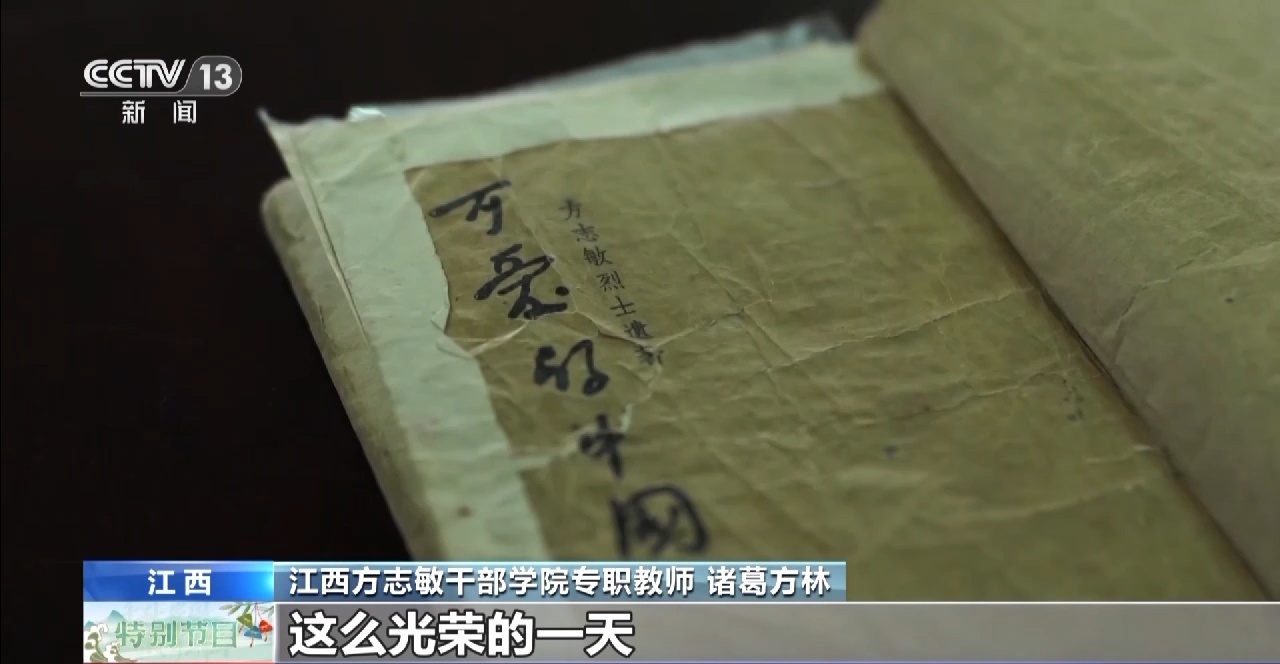 CCTV 13
新闻
可爱的中國
方志敏烈士遺著
江西
江西方志敏干部学院专职教师 诸葛方林
特别节目
这么光荣的一天